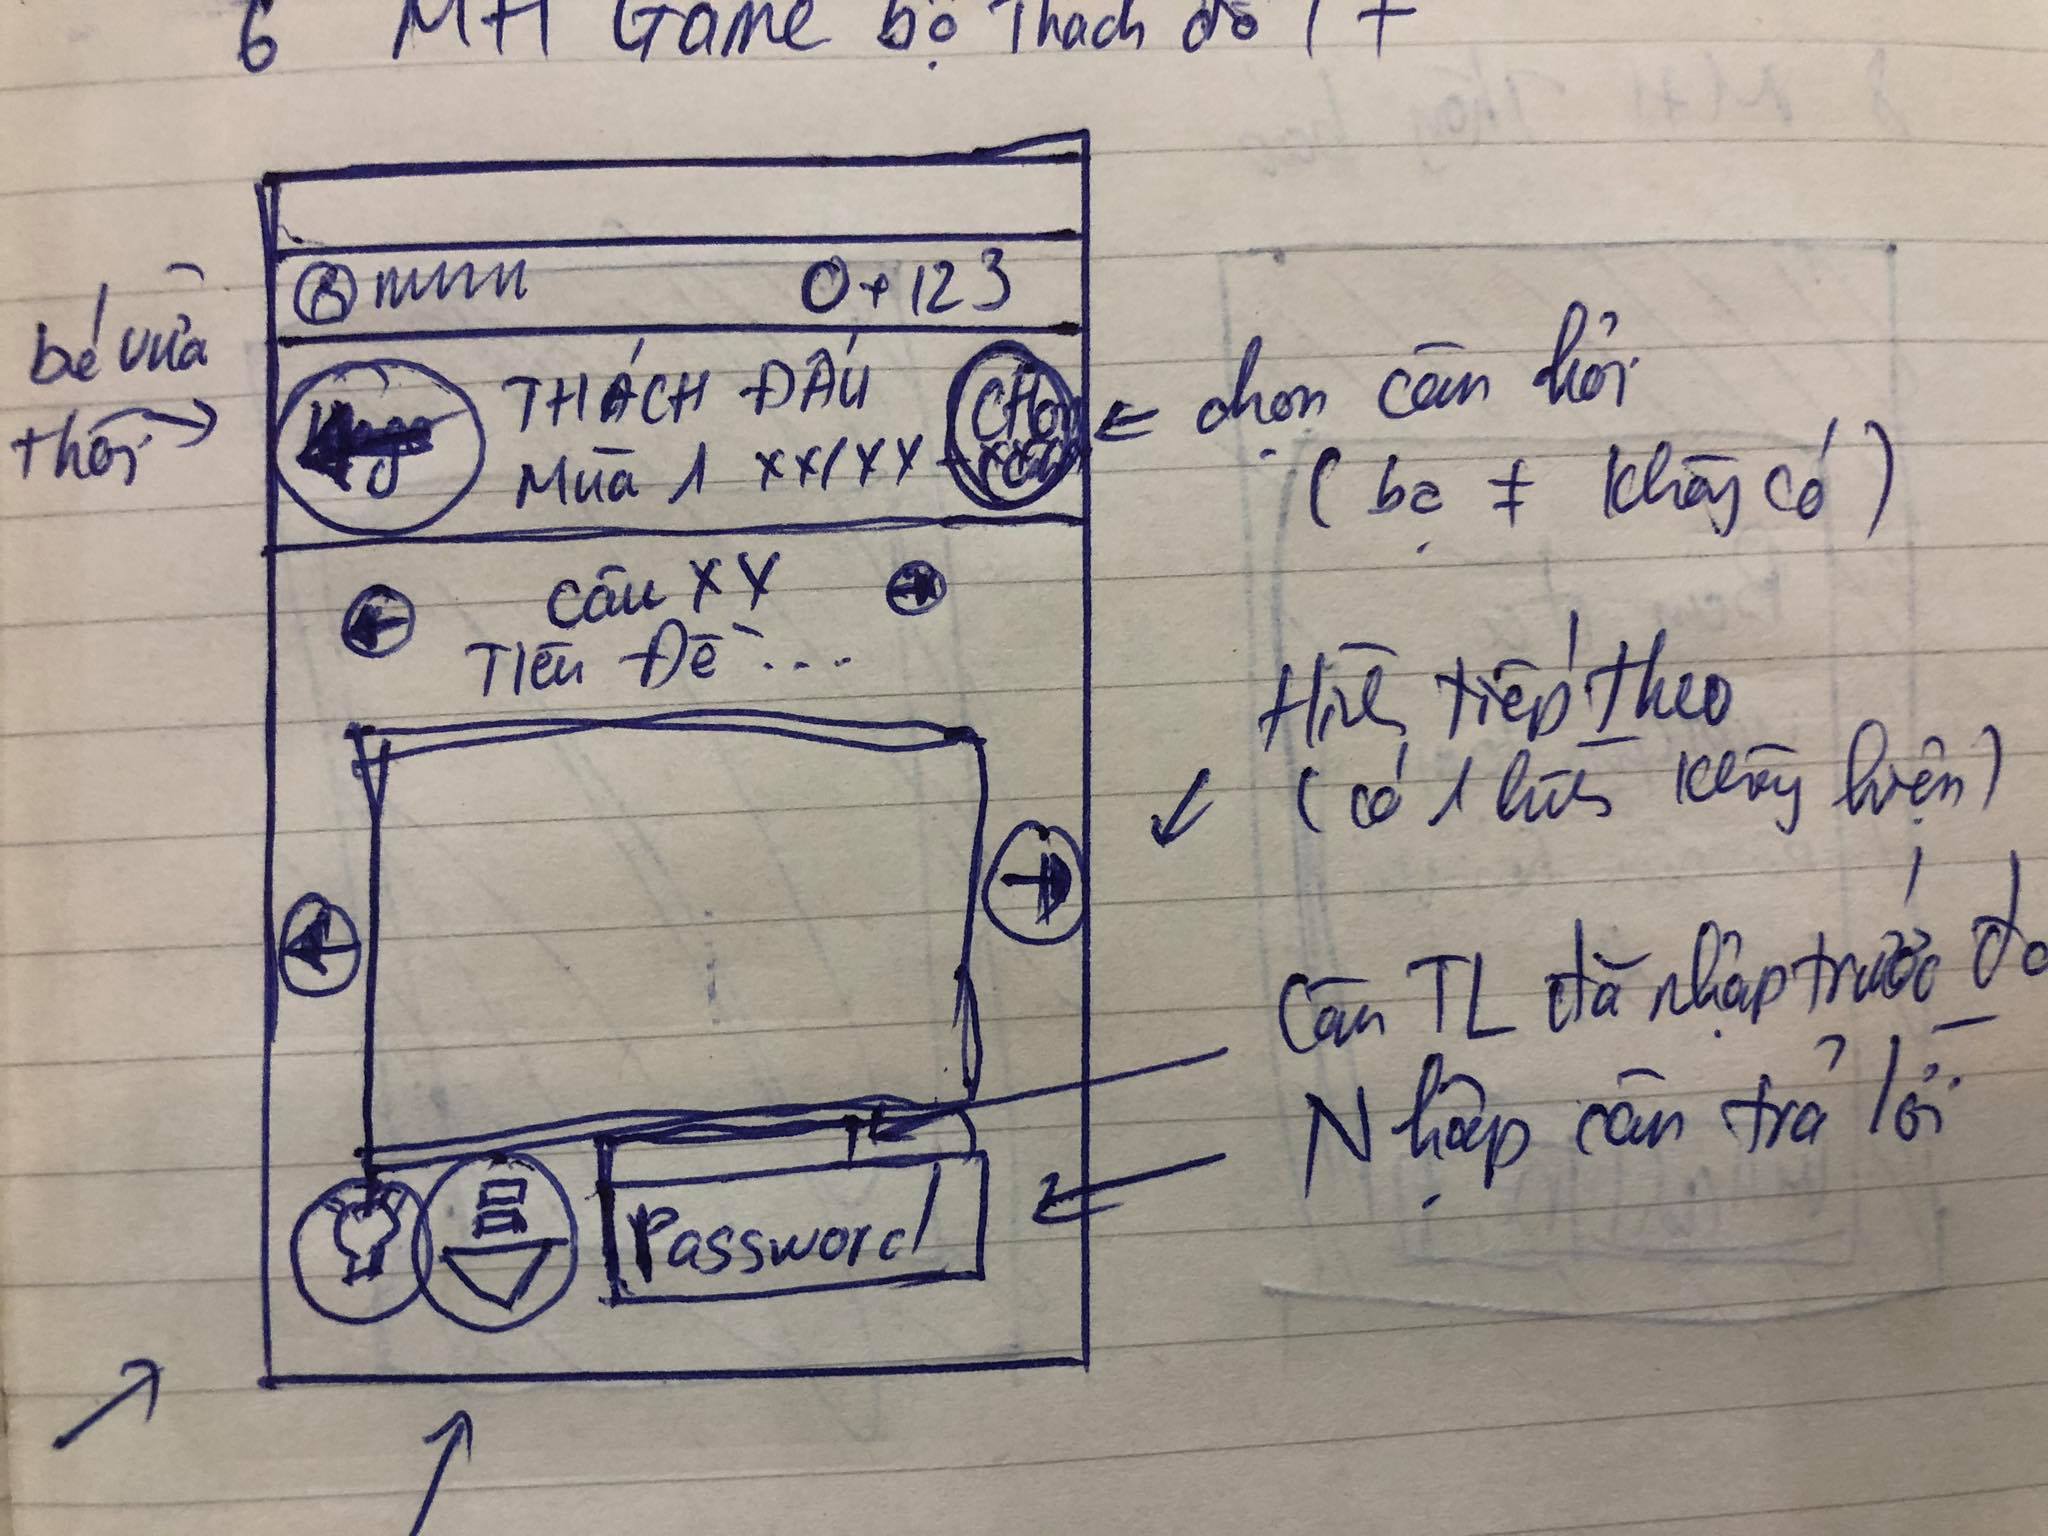 6 MH Game bộ Thách đố
0 + 123
bé vừa
thôi
THÁCH ĐẤU
Mùa 1 XX/XX - XX/XX
chọn câu hỏi
(bộ ≠ không có)
Câu XY
Tiêu Đề ...
Hình tiếp theo
(có 1 hình không hiện)
Câu TL đã nhập trước đó
Nhập câu trả lời
Password